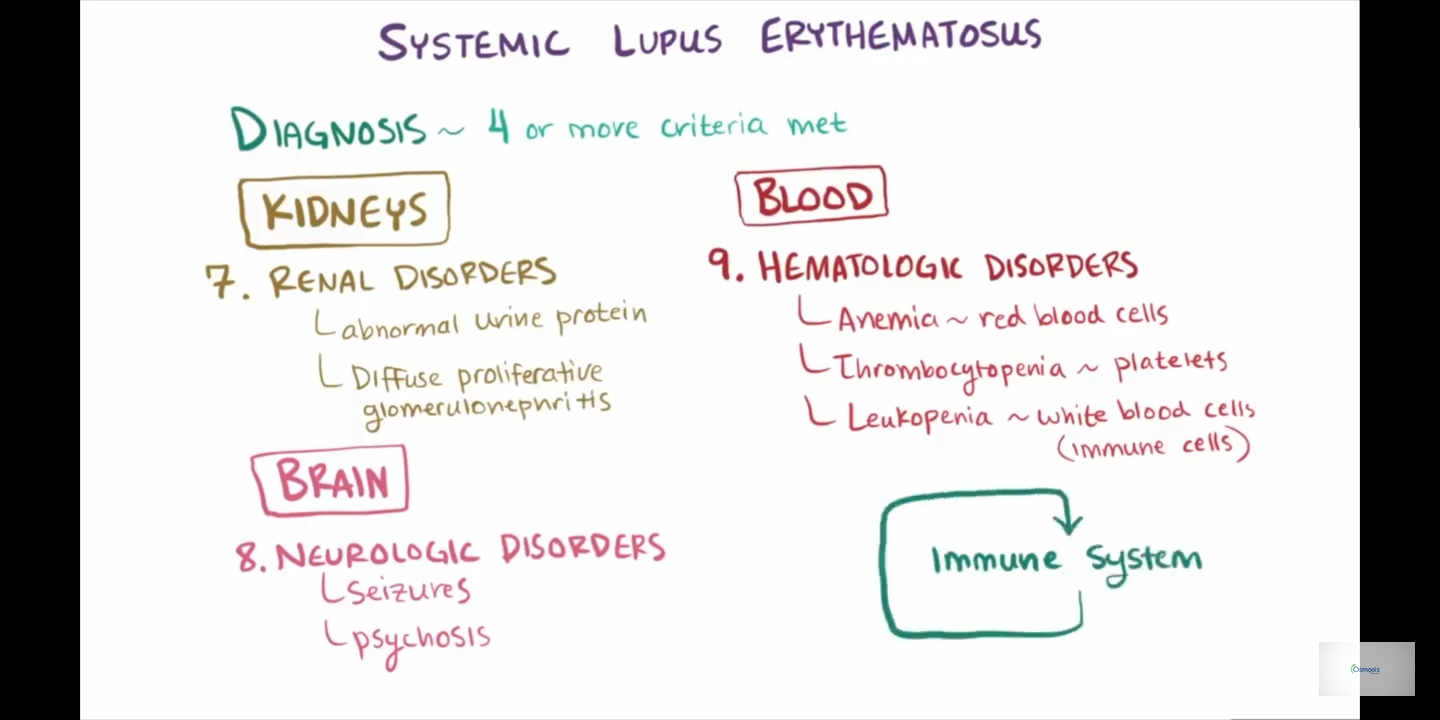 SYSTEMIC LUPUS ERYTHEMATOSUS
DIAGNOSIS ~ 4 or more criteria met
KIDNEYS
7. RENAL DISORDERS
abnormal urine protein
Diffuse proliferative
glomerulonephritis
BRAIN
8. NEUROLOGIC DISORDERS
seizures
psychosis
BLOOD
9. HEMATOLOGIC DISORDERS
Anemia ~ red blood cells
Thrombocytopenia ~ platelets
Leukopenia ~ white blood cells
(immune cells)
Immune System
Osmosis